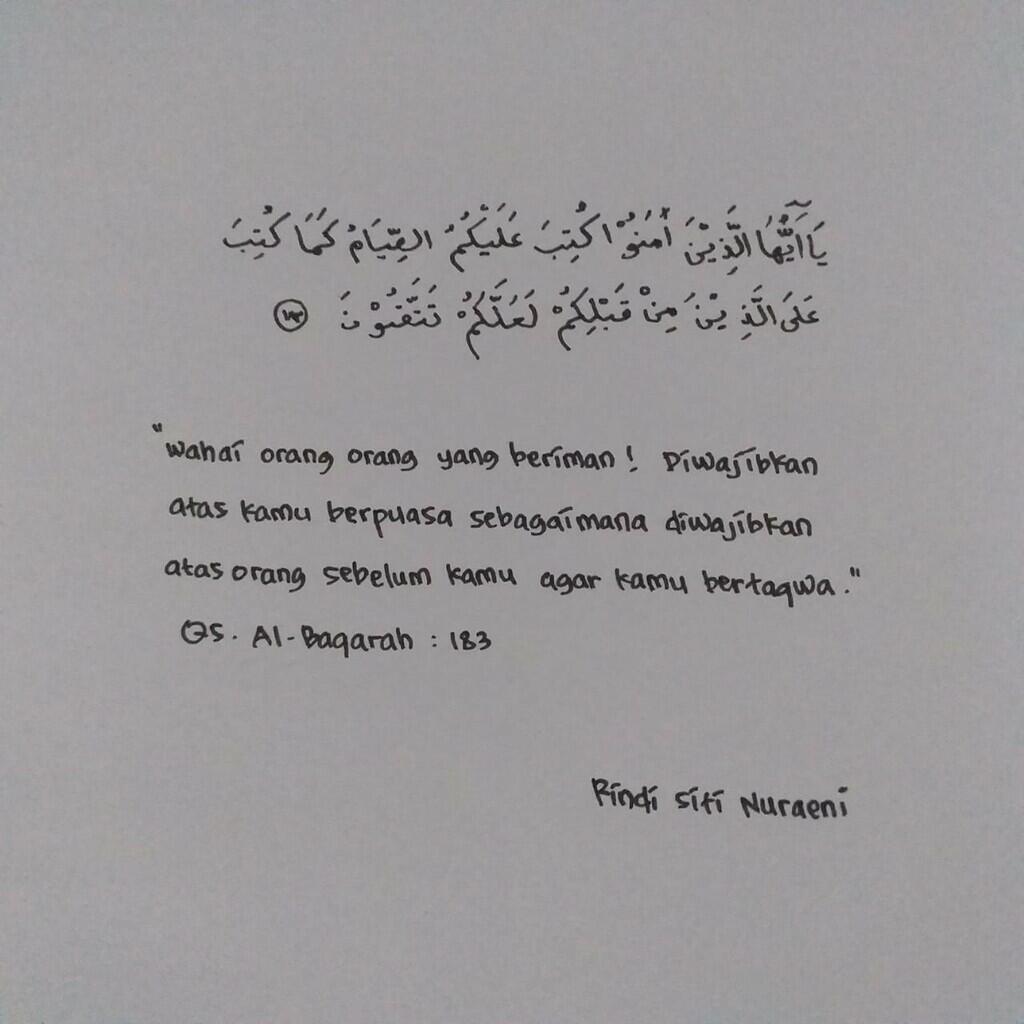 يَا آيُّهَا الَّذِيْنَ اٰمَنُوْا كُتِبَ عَلَيْكُمُ الصِّيَامُ كَمَا كُتِبَ
عَلَى الَّذِيْنَ مِنْ قَبْلِكُمْ لَعَلَّكُمْ تَتَّقُوْنَ
"Wahai orang orang yang beriman! Diwajibkan
atas kamu berpuasa sebagaimana diwajibkan
atas orang sebelum kamu agar kamu bertaqwa."
QS. Al-Baqarah : 183
Rindi Siti Nuraeni